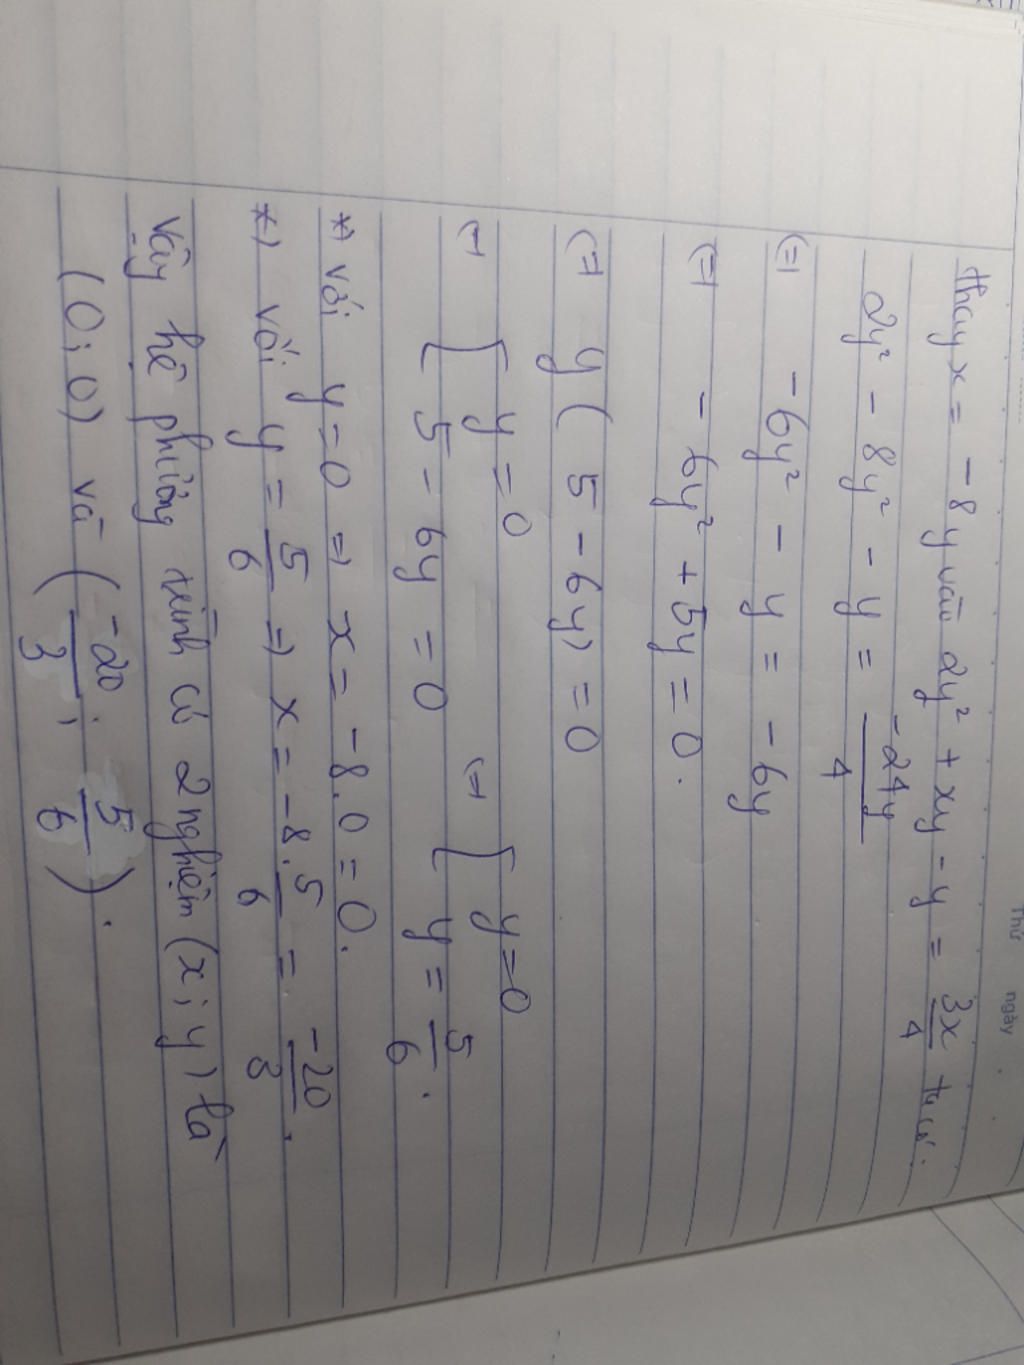 Thứ ngày
thay x = -8y vào 2y² + xy - y = 3x/4 ta có.
2y² - 8y² - y = -24y/4
(=) -6y² - y = -6y
(=) -6y² + 5y = 0.
(=) y( 5 - 6y) = 0
(=) [ y = 0 (=) [ y = 0
5 - 6y = 0 y = 5/6.
*) với y = 0 => x = -8.0 = 0.
*) với y = 5/6 => x = -8.5/6 = -20/3.
Vậy hệ phương trình có 2 nghiệm (x; y) là
(0; 0) và (-20/3; 5/6).